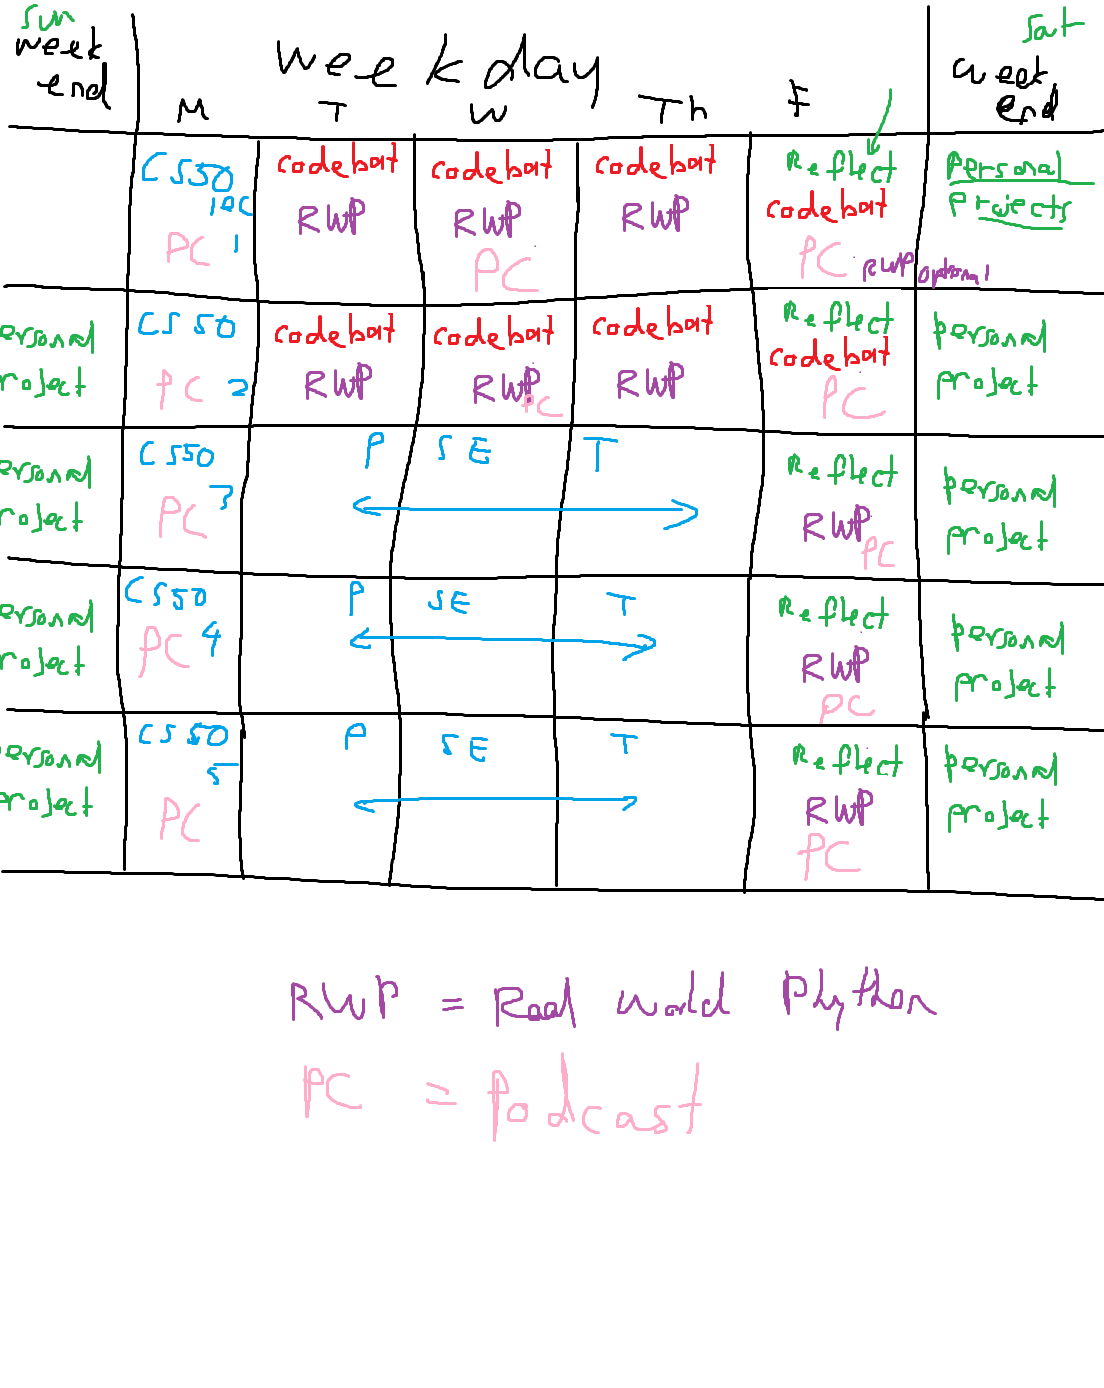 sun
week
end
weekday
sat
week
end
M T W Th F
CS50
lec
1
PC
codebat
RWP
codebat
RWP
PC
codebat
RWP
Reflect
codebat
PC RWP optional
Personal
Projects
ersonal
roject
CS50
PC 2
codebat
RWP
codebat
RWP
PC
codebat
RWP
Reflect
codebat
PC
personal
project
ersonal
roject
CS50
3
PC
P SE T
Reflect
RWP
PC
personal
project
ersonal
roject
CS50
PC 4
P SE T
Reflect
RWP
PC
personal
project
ersonal
roject
CS50
5
PC
P SE T
Reflect
RWP
PC
personal
project
RWP = Real world Phython
PC = Podcast